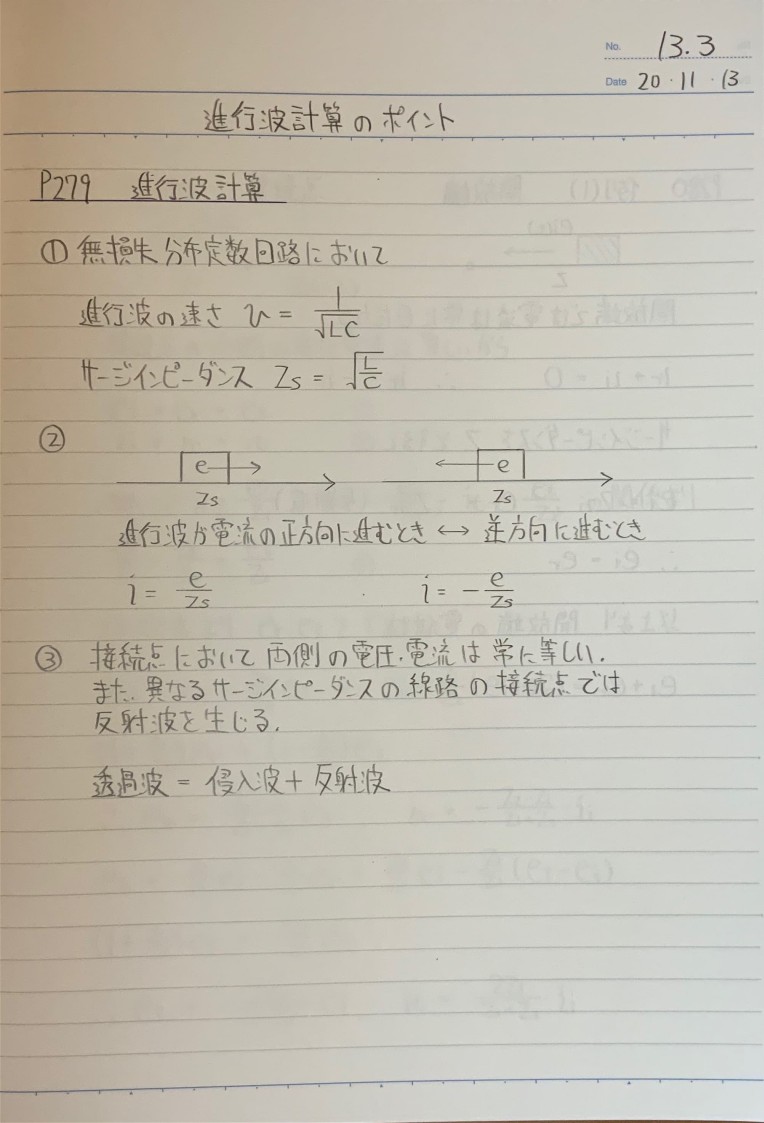 No. 13.3
Date 20・11・13
進行波計算のポイント
P279 進行波計算
① 無損失分布定数回路において
進行波の速さ v = 1/√LC
サージインピーダンス Zs = √L/C
②
e e
Zs Zs
進行波が電流の正方向に進むとき ↔ 逆方向に進むとき
i = e/Zs i = - e/Zs
③ 接続点において両側の電圧.電流は常に等しい.
また.異なるサージインピーダンスの線路の接続点では
反射波を生じる.
透過波 = 侵入波 + 反射波